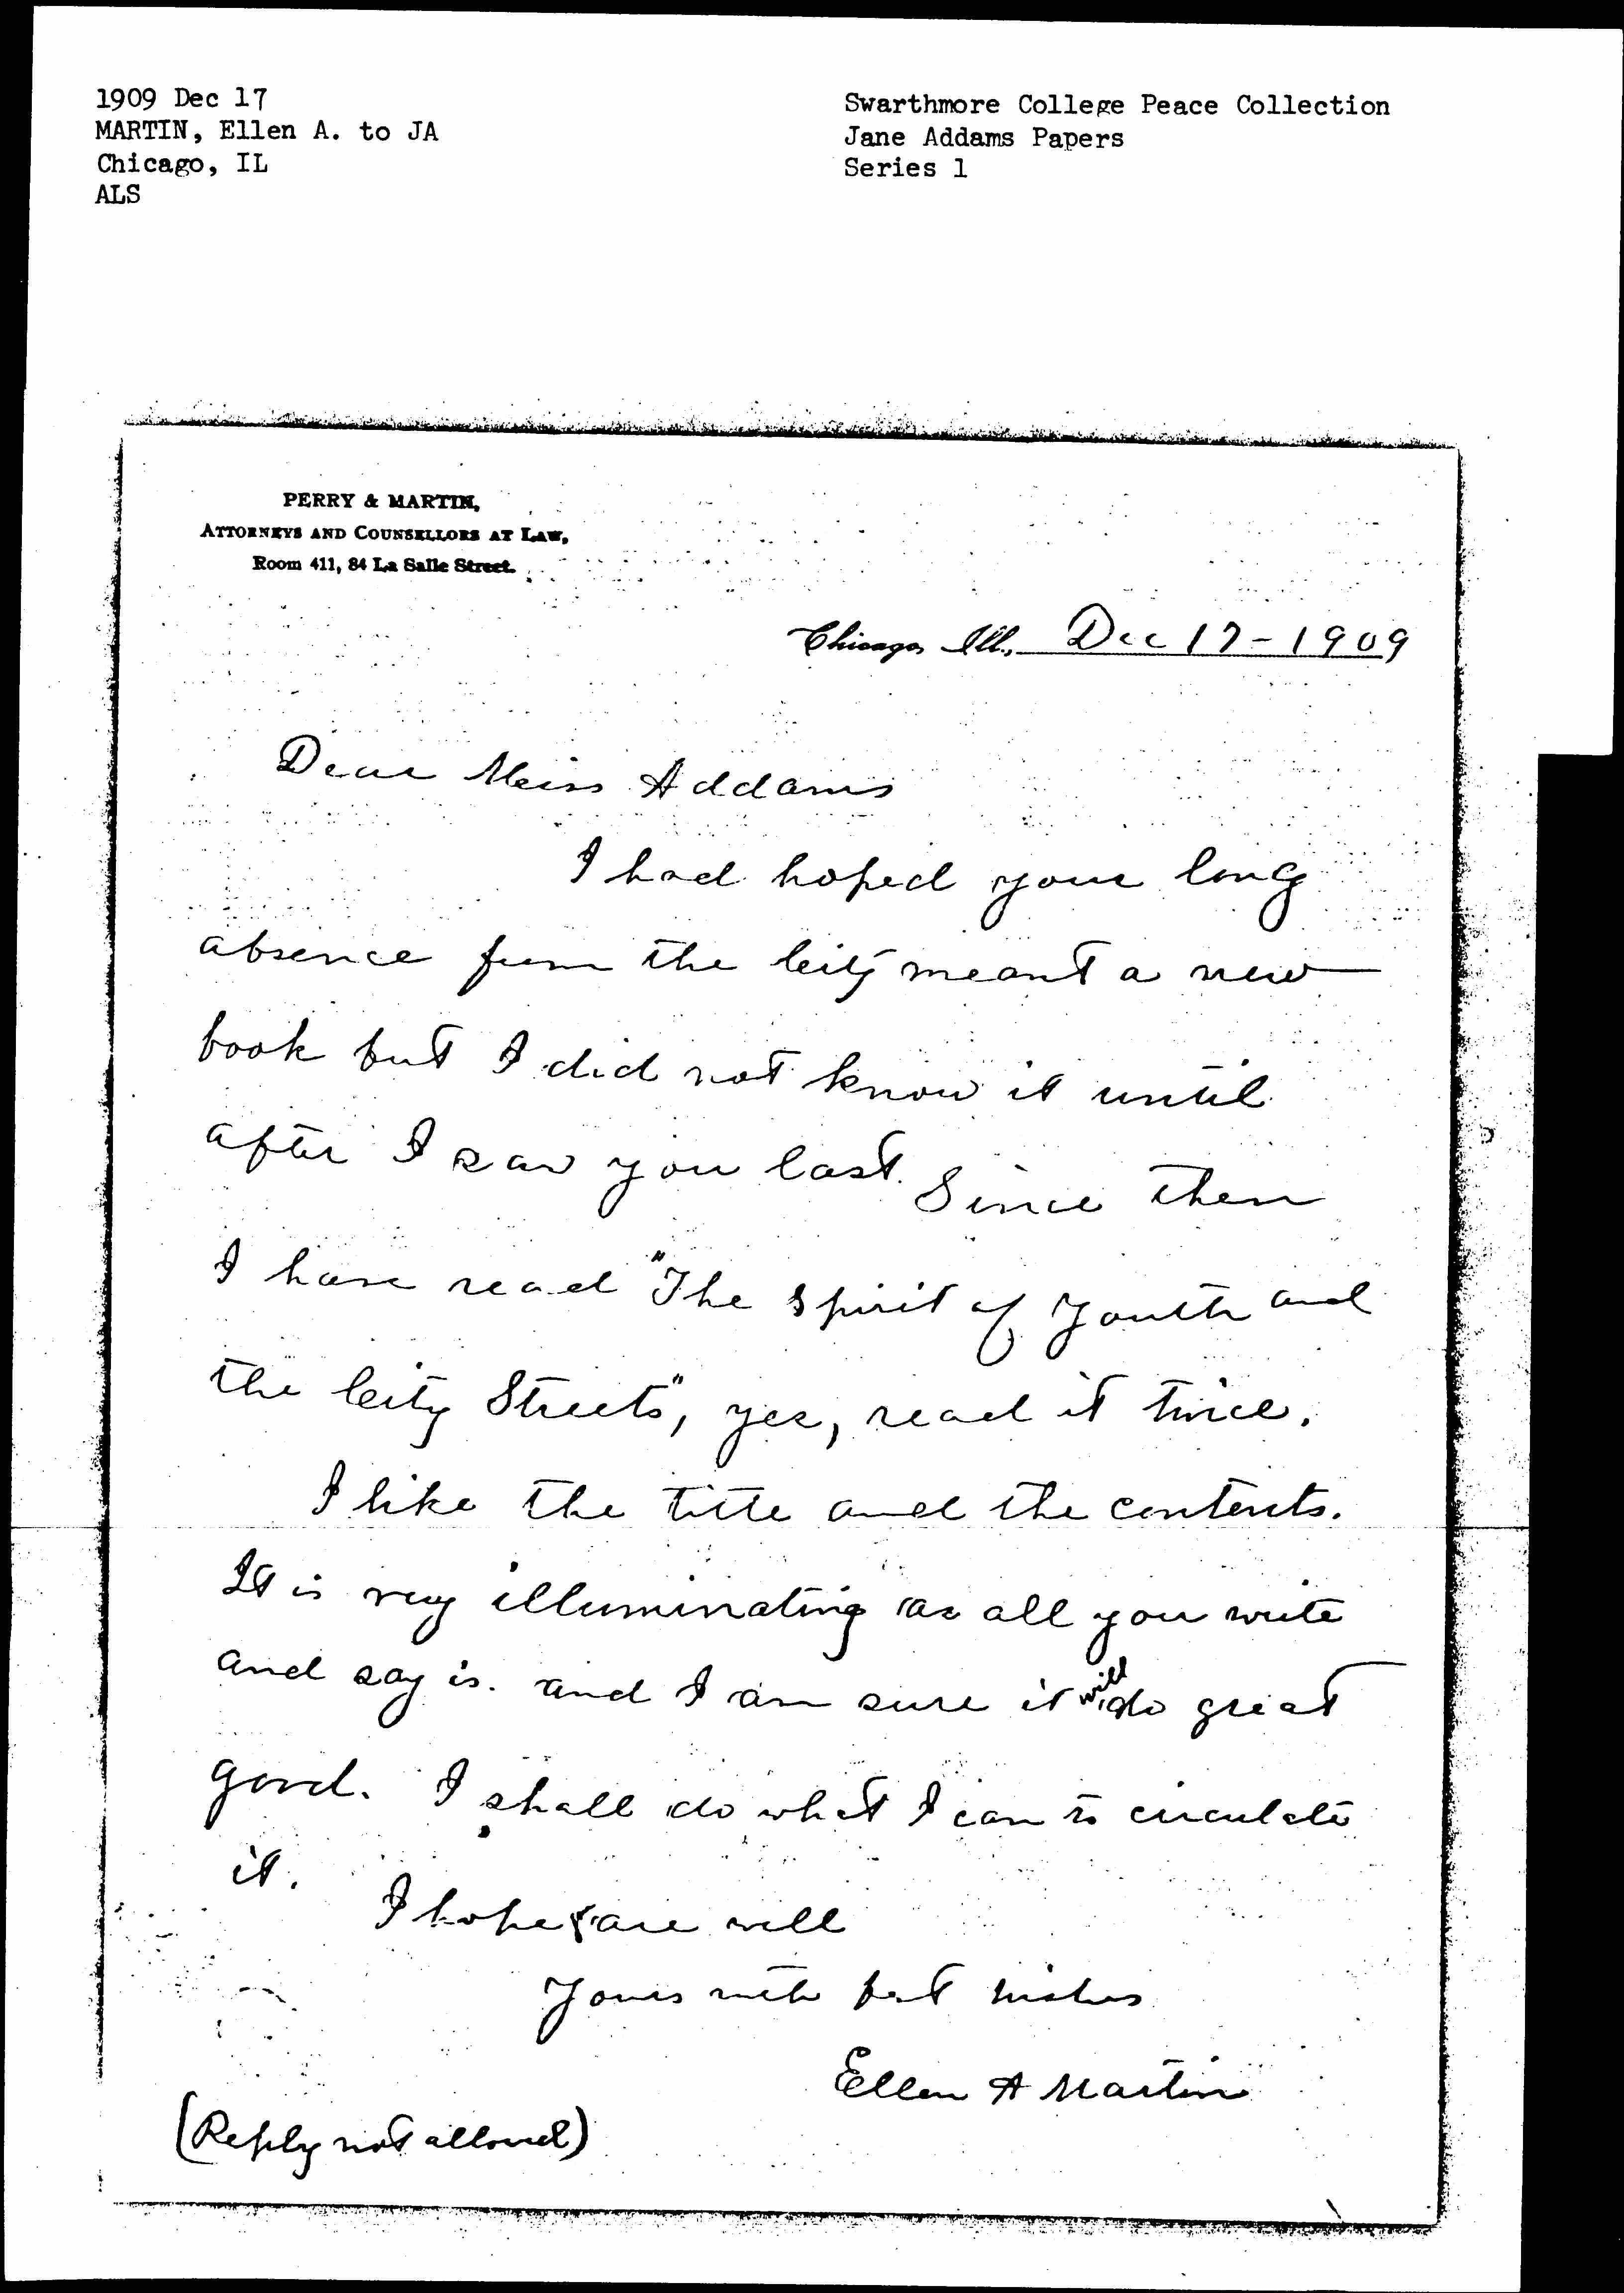 1909 Dec 17
MARTIN, Ellen A. to JA
Chicago, IL
ALS
Swarthmore College Peace Collection
Jane Addams Papers
Series 1
PERRY & MARTIN,
ATTORNEYS AND COUNSELLORS AT LAW,
Room 411, 84 La Salle Street.
Chicago, Ill., Dec 17-1909
Dear Miss Addams
I had hoped your long
absence from the City meant a new
book but I did not know it until
after I saw you last. Since then
I have read "The Spirit of Youth and
the City Streets", yes, read it twice.
I like the title and the contents.
It is very illuminating as all you write
and say is. and I am sure it will do great
good. I shall do what I can to circulate
it.
I hope are well
Yours with best wishes
Ellen A Martin
(Reply not allowed)